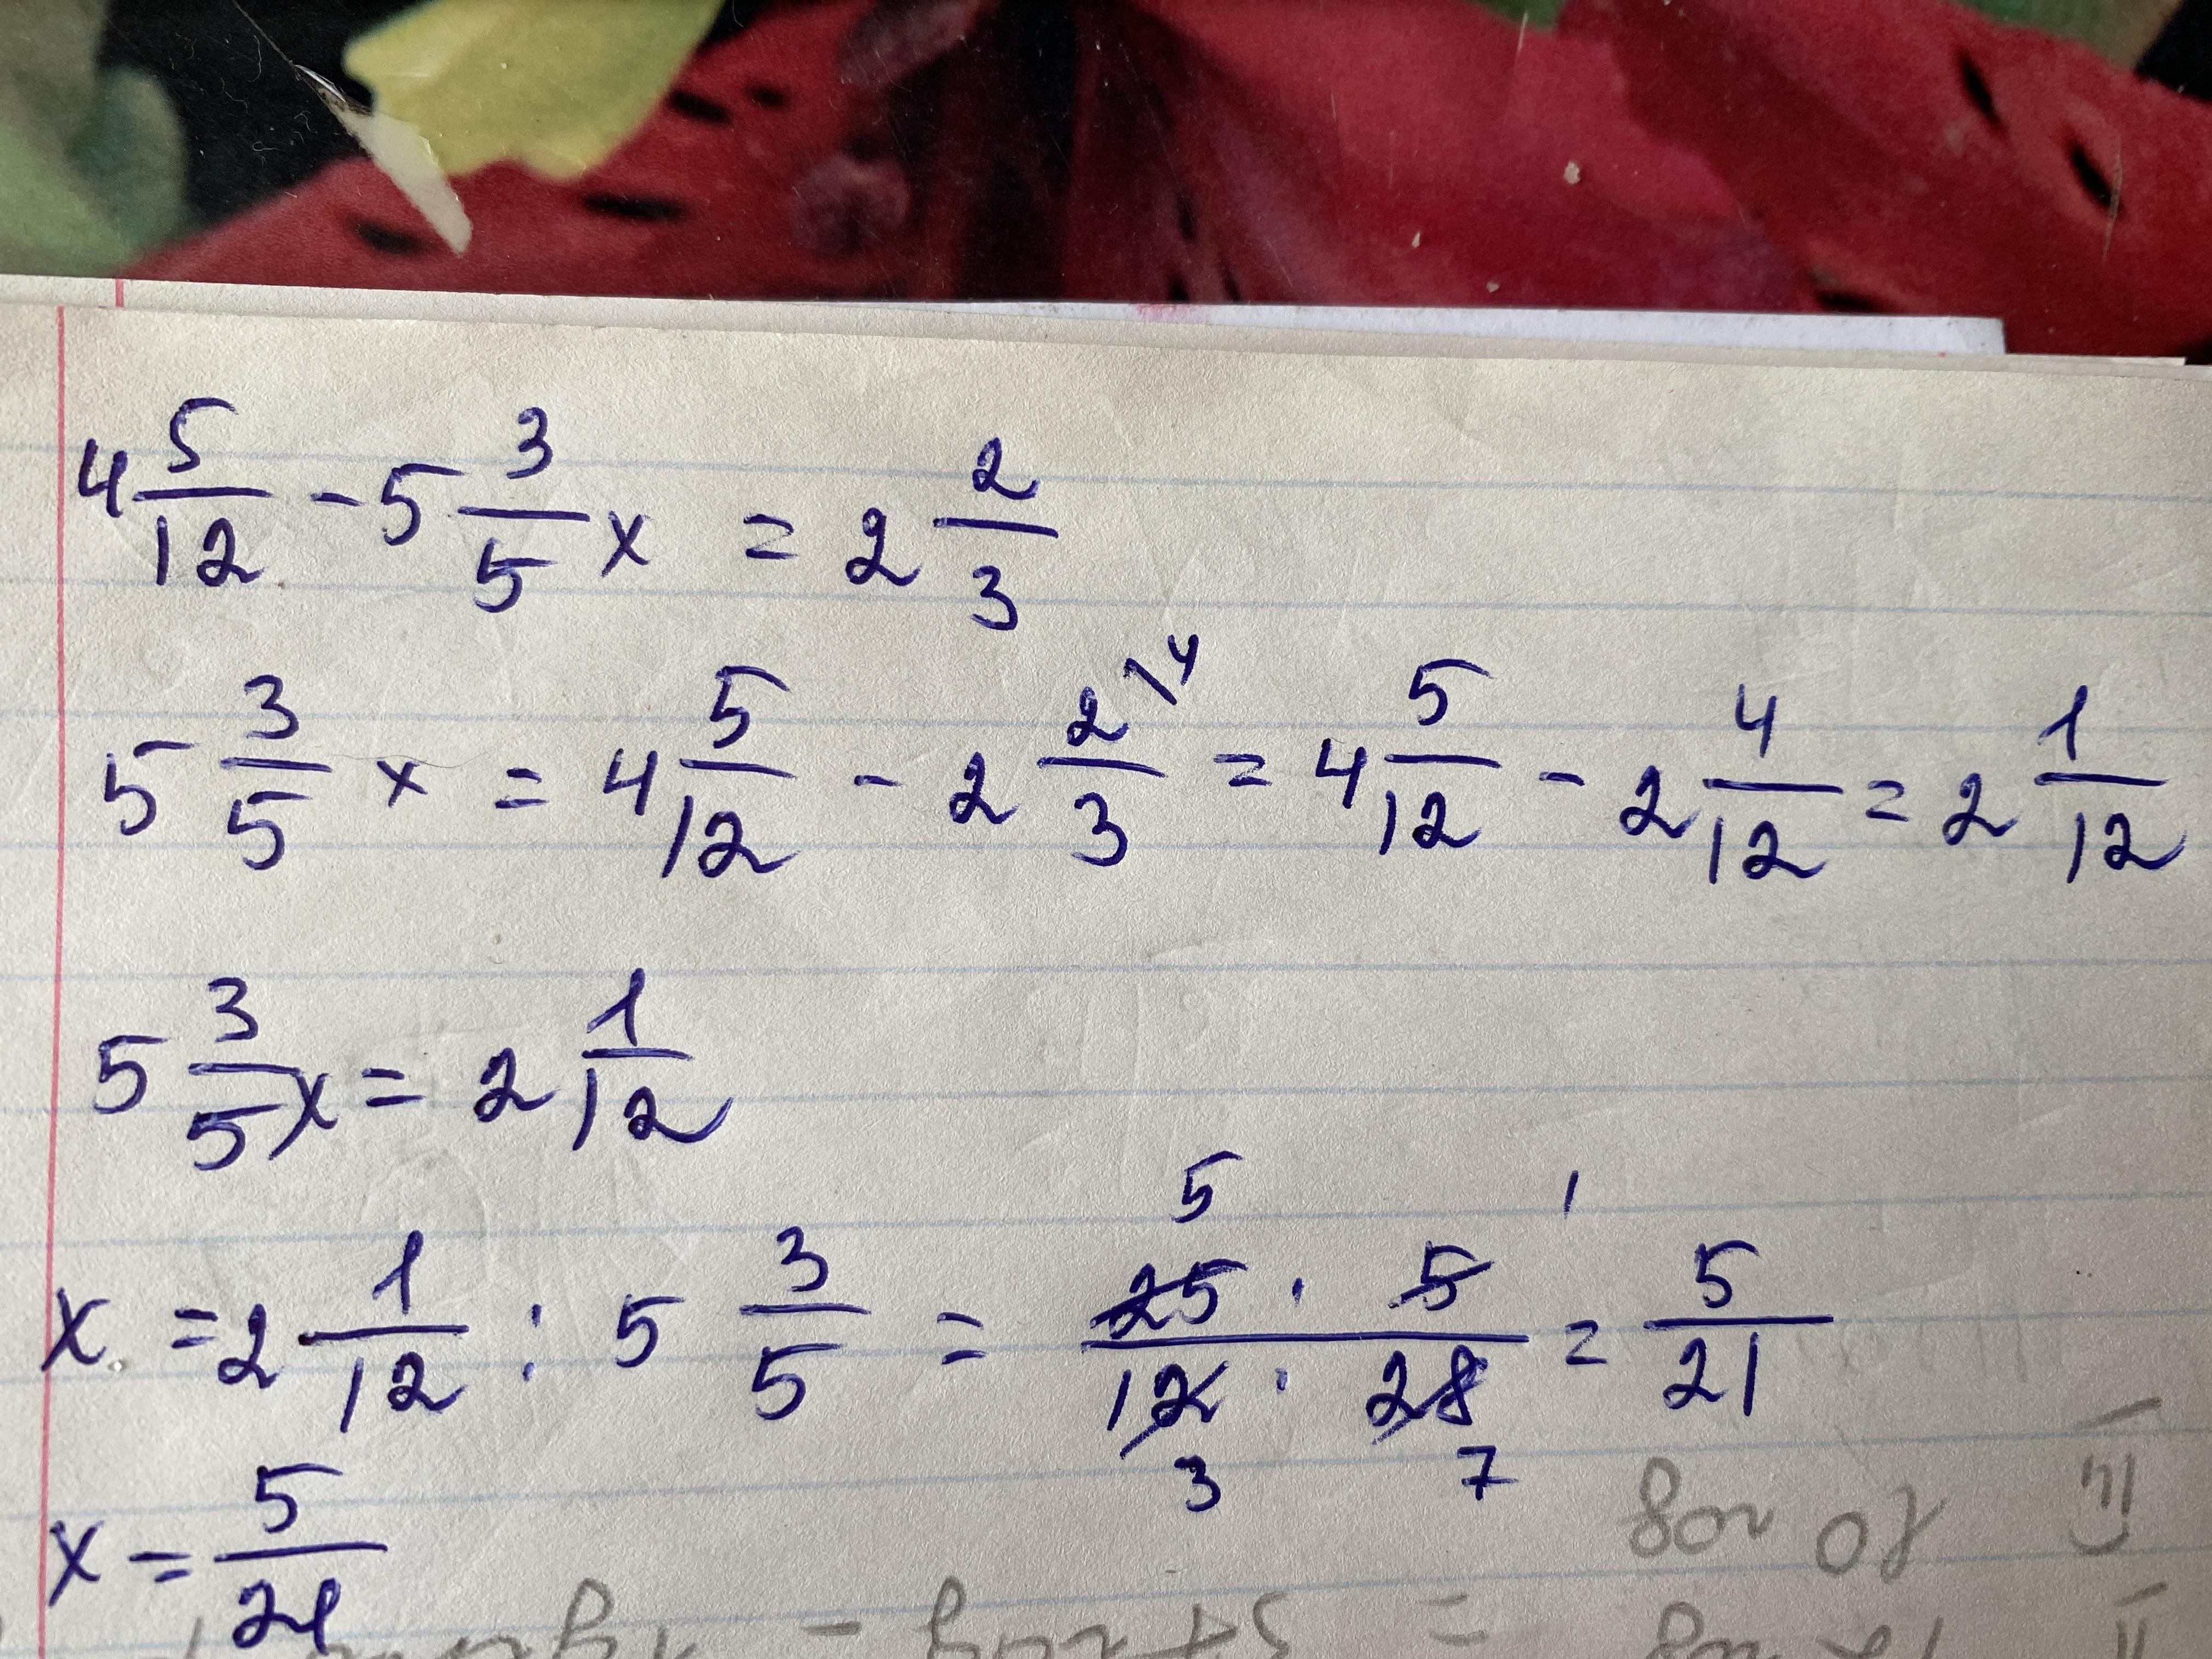 4 5/12 - 5 3/5 x = 2 2/3
5 3/5 x = 4 5/12 - 2 2\4/3 = 4 5/12 - 2 4/12 = 2 1/12
5 3/5 x = 2 1/12
5 1
x = 2 1/12 : 5 3/5 = 25 · 5/12 · 28 = 5/21
3 7
x = 5/21